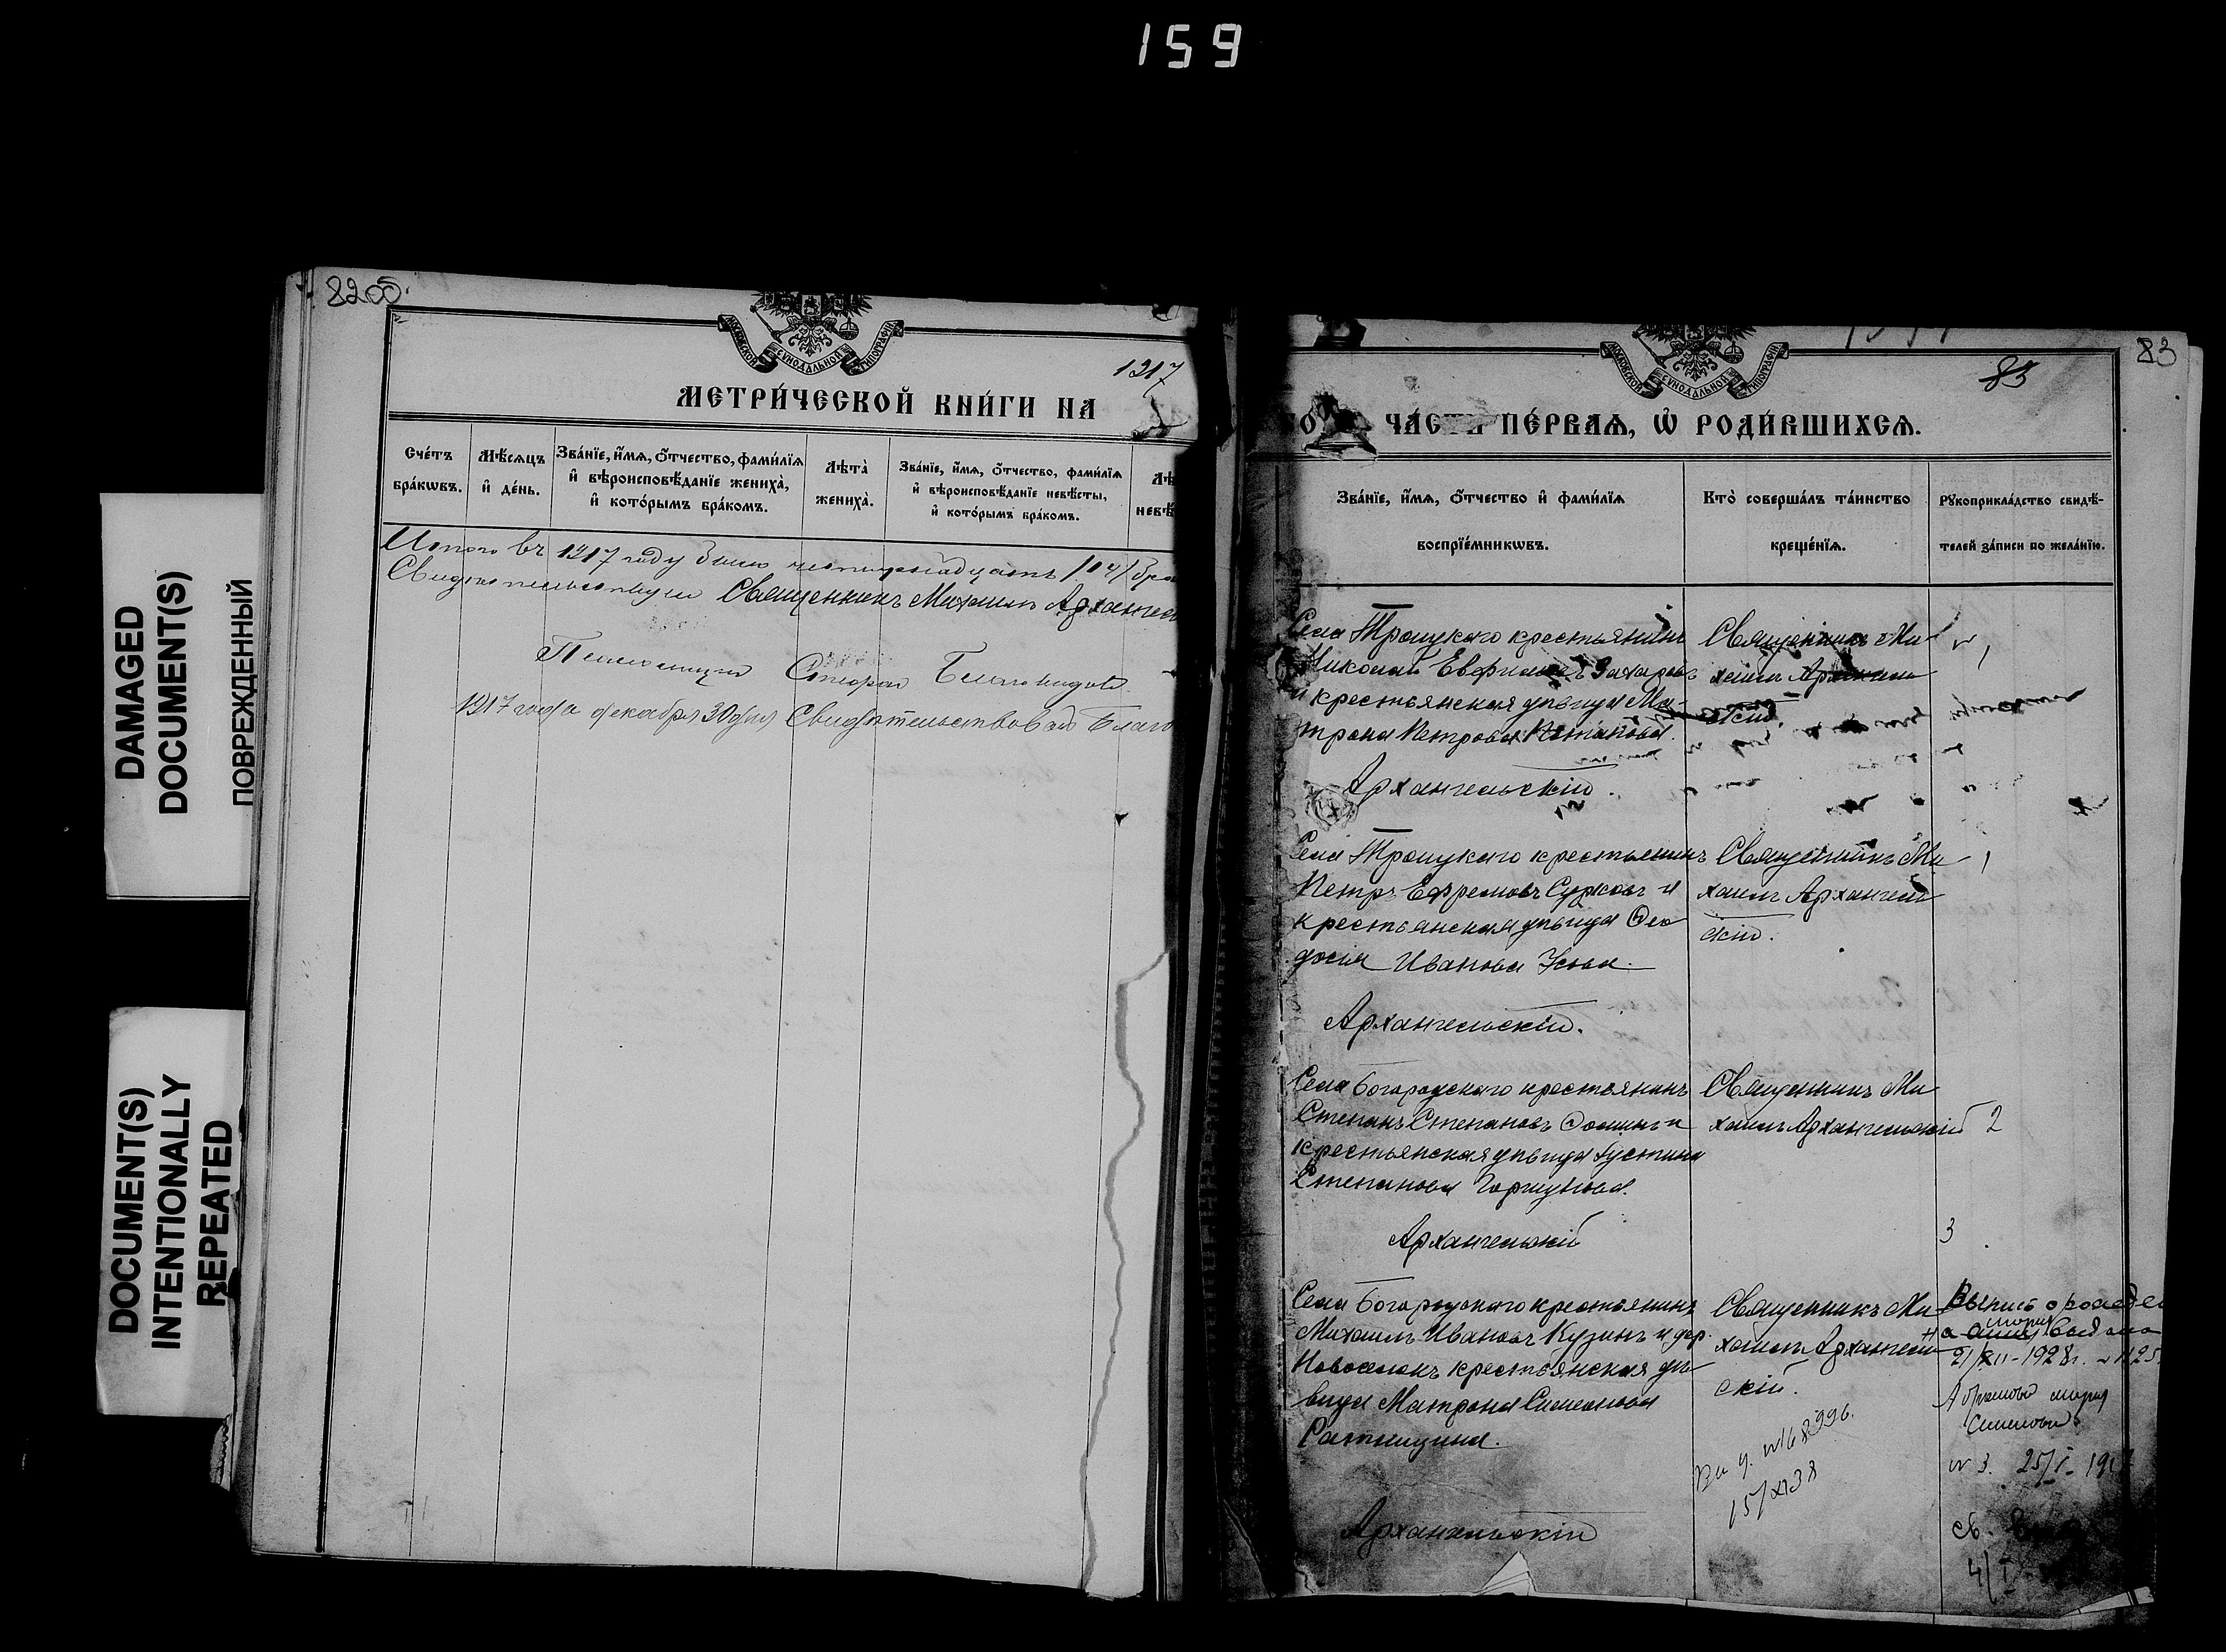 159
DAMAGED
DOCUMENT(S)
ПОВРЕЖДЕННЫЙ
DOCUMENT(S)
INTENTIONALLY
REPEATED
82об.
МОСКОВСКОЙ СѴНОДАЛЬНОЙ ТИПОГРАФІИ
1917
МЕТРИ́ЧЕСКОЙ КНИ́ГИ НА
Сче́тъ бра́кѡвъ.
Мѣ́сѧцъ и҆ де́нь.
Зва́нїе, и҆́мѧ, ѻ҆́тчество, фами́лїѧ
и҆ вѣроисповѣ́данїе жениха̀,
и҆ кото́рымъ бра́комъ.
Лѣта̀ жениха̀.
Зва́нїе, и҆́мѧ, ѻ҆́тчество, фами́лїѧ
и҆ вѣроисповѣ́данїе невѣ́сты,
и҆ кото́рымъ бра́комъ.
Лѣ
невѣ́
Итого въ 1917 году было четырнадцать /14/ бра
Священникъ Михаилъ Архангел
Псаломщикъ
1917 года декабря 30 дня Свидѣтельствовалъ Благо
83
83
МОСКОВСКОЙ СѴНОДАЛЬНОЙ ТИПОГРАФІИ
ЧА́СТЬ ПЕ́РВАѦ, Ѡ҆ РОДИ́ВШИХСѦ.
Зва́нїе, и҆́мѧ, ѻ҆́тчество и҆ фами́лїѧ
воспрїе́мникѡвъ.
Кто̀ соверша́лъ та́инство
креще́нїѧ.
Рꙋкоприкла́дство свидѣ́-
телей за́писи по жела́нїю.
Села Троицкаго крестьянинъ
Николай Евфимовъ Захаровъ
и крестьянская дѣвица Ма-
трона Петрова Потапова.
Архангельскій.
Священникъ Ми-
хаилъ Архангель
скій.
Села Троицкаго крестьянинъ
Петръ Ефремовъ Сурковъ и
крестьянская дѣвица Ѳео
досія Иванова Усова.
Архангельскій.
Священникъ Ми
хаилъ Архангель
скій.
1
Села Богородскаго крестьянинъ
Степанъ Степановъ Ѳоминъ и
крестьянская дѣвица Іустина
Степанова Горшунова.
Архангельскій
Священникъ Ми
хаилъ Архангельскій
2
3
Села Богородскаго крестьянинъ
Михаилъ Ивановъ Кузинъ и дер.
Новоселокъ крестьянская дѣ
вица Матрона Симеонова
Ратницына.
Архангельскій
Священникъ Ми
хаилъ Архангель
скій.
Выпись о рожден
21/XII-1928г. №1125
Абрамова
№ 3. 25/I-19
св.
4/I
№168996.
15/XI 38